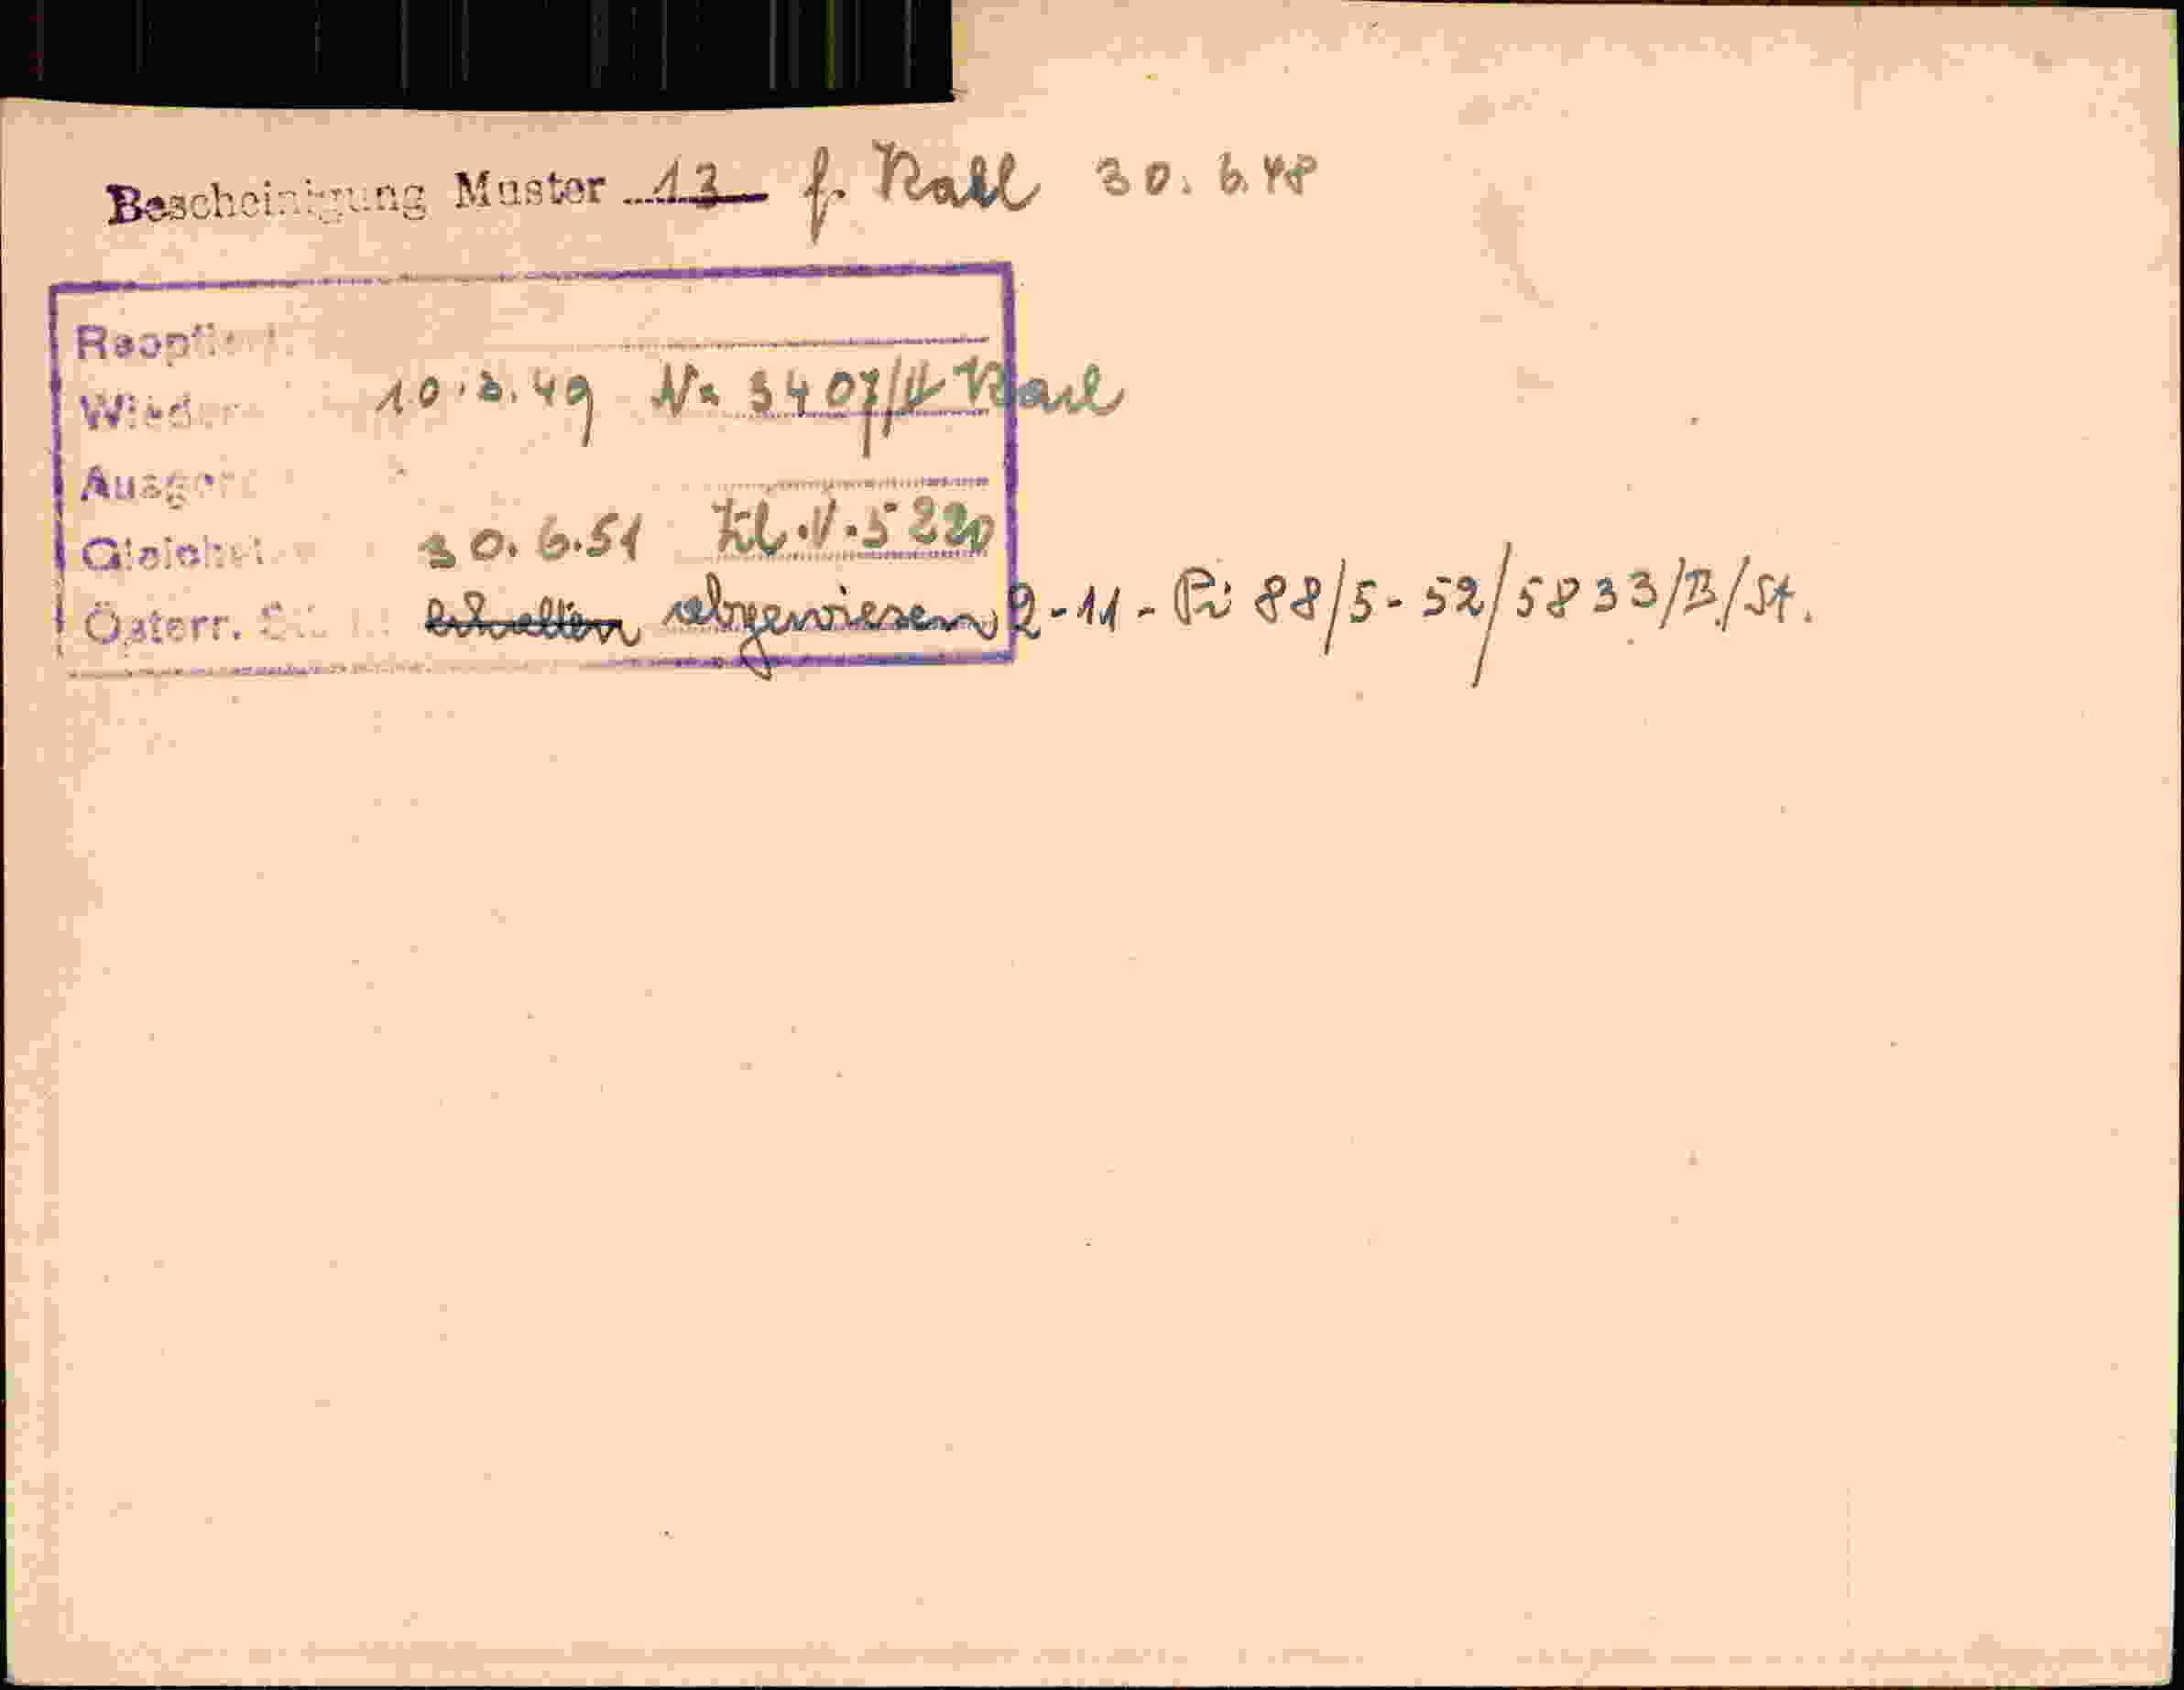 Bescheinigung Muster 13 f. Karl 30.6.48
Reoptiert
Wieder 10.3.49 Nr 3407/V Karl
Ausger
Gleichst 30.6.51 Zl.V.5220
Österr. erhalten abgewiesen 2-11-Pi 88/5-52/5833/B/St.